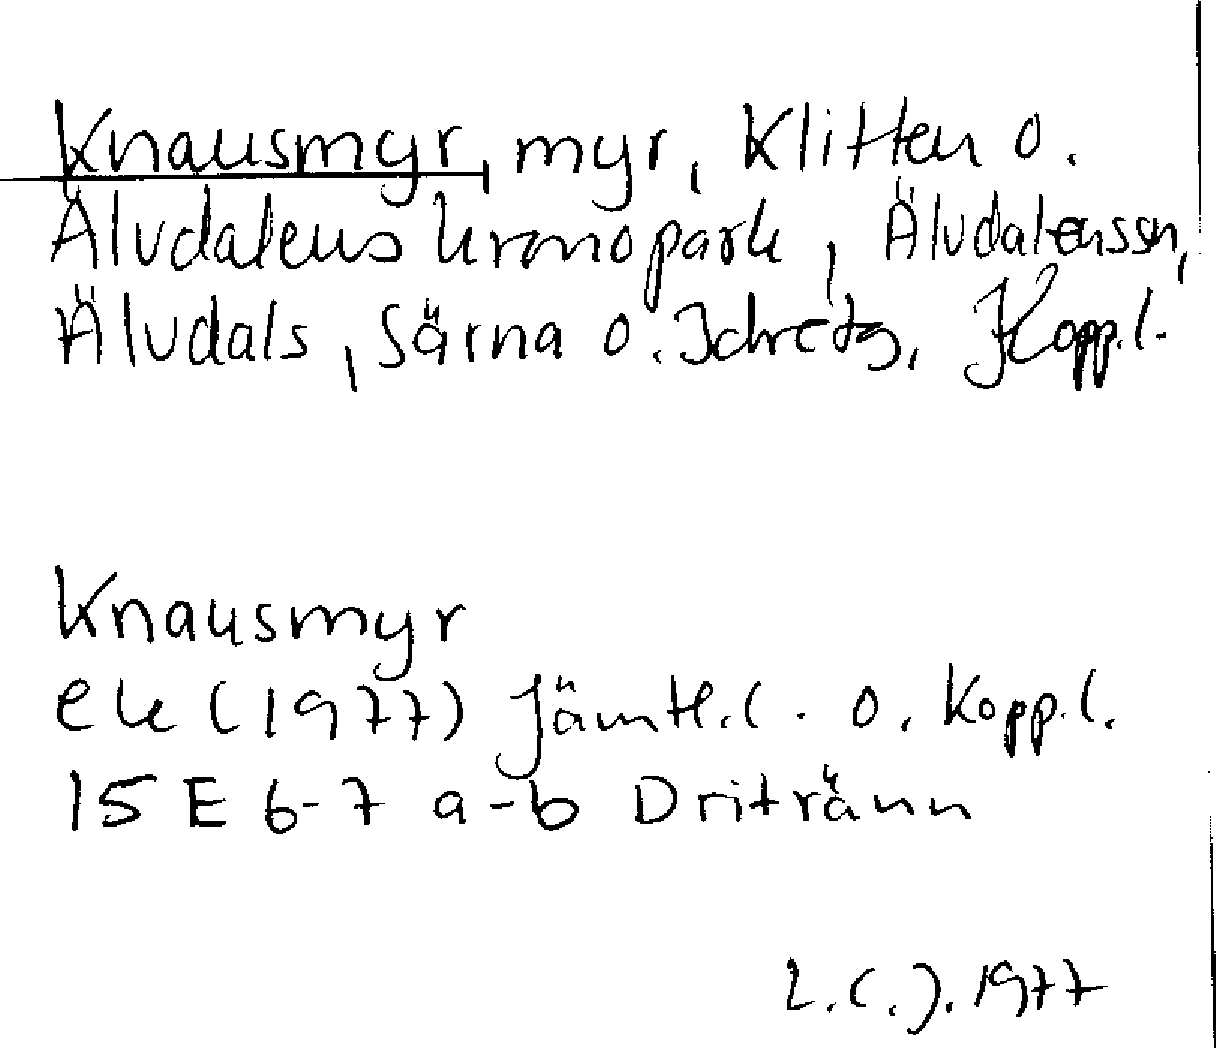 Knausmyr, myr, Klitten o.
Älvdalens kronopark, Älvdalenssn,
Älvdals, Särna o. Idretg, Kopp.l.
Knausmyr
ek (1977) Jämtl.l. o. Kopp.l.
15 E 6-7 a-b Dritränn
L.C.J. 1977